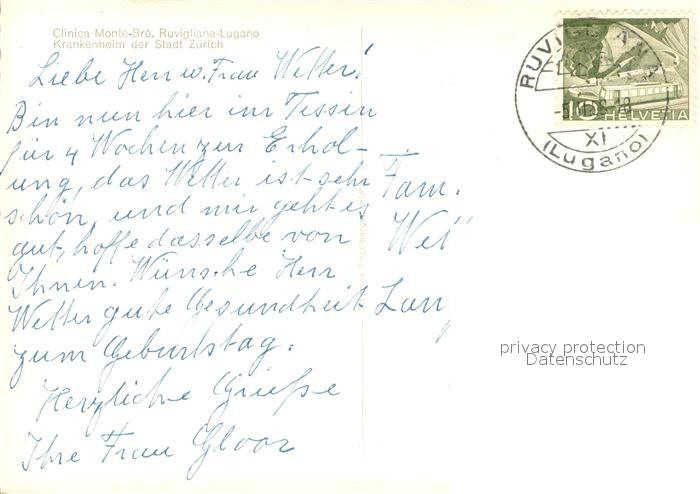 Clinica Monte-Brè, Ruvigliana-Lugano
Krankenheim der Stadt Zürich
Liebe Herr u. Frau Wetter!
Bin nun hier im Tessin
für 4 Wochen zur Erhol-
ung, das Wetter ist sehr
schön, und mir geht es
gut, hoffe dasselbe von
Ihnen. Wünsche Herr
Wetter gute Gesundheit
zum Geburtstag.
Herzliche Grüße
Ihre Frau Gloor
Fam.
Wet
Lan
RUVIGLIANA
XI
(Lugano)
10 HELVETIA
privacy protection
Datenschutz